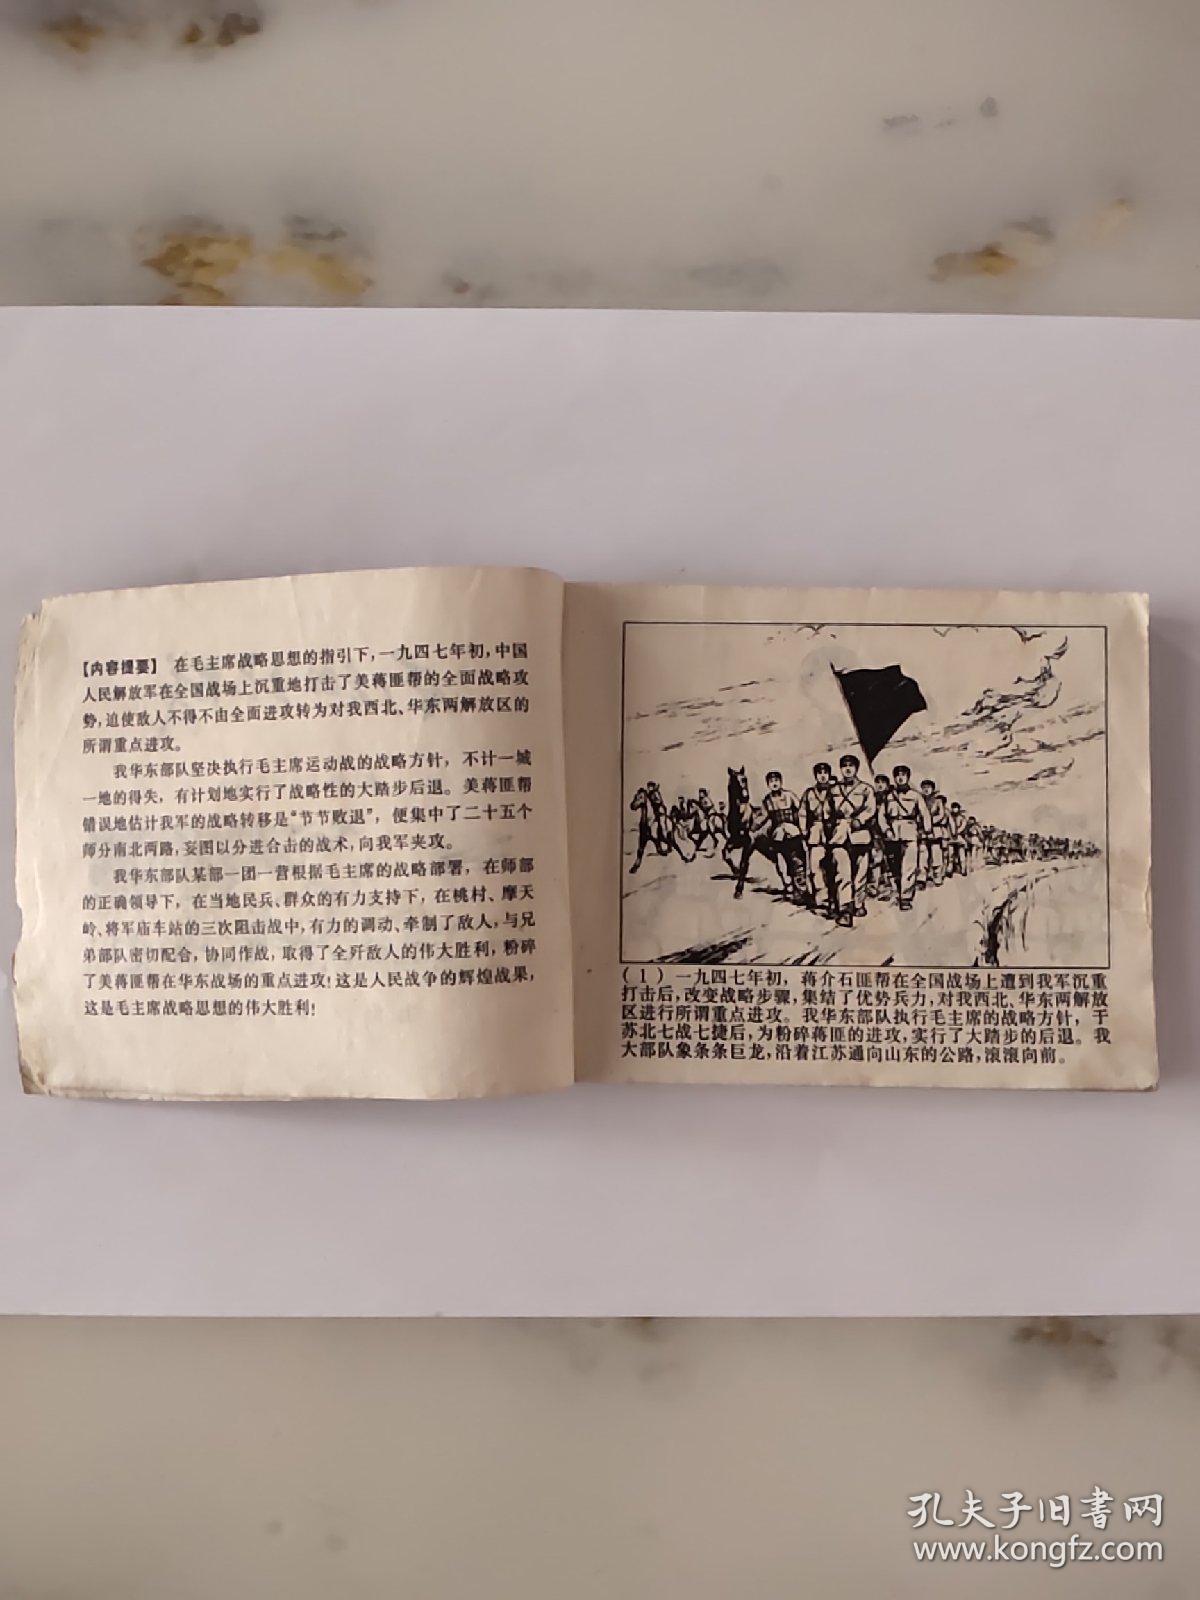 【内容提要】 在毛主席战略思想的指引下，一九四七年初，中国
人民解放军在全国战场上沉重地打击了美蒋匪帮的全面战略攻
势，迫使敌人不得不由全面进攻转为对我西北、华东两解放区的
所谓重点进攻。
我华东部队坚决执行毛主席运动战的战略方针，不计一城
一地的得失，有计划地实行了战略性的大踏步后退。美蒋匪帮
错误地估计我军的战略转移是“节节败退”，便集中了二十五个
师分南北两路，妄图以分进合击的战术，向我军夹攻。
我华东部队某部一团一营根据毛主席的战略部署，在师部
的正确领导下，在当地民兵、群众的有力支持下，在桃村、摩天
岭、将军庙车站的三次阻击战中，有力的调动、牵制了敌人，与兄
弟部队密切配合，协同作战，取得了全歼敌人的伟大胜利，粉碎
了美蒋匪帮在华东战场的重点进攻！这是人民战争的辉煌战果，
这是毛主席战略思想的伟大胜利！
（1）一九四七年初，蒋介石匪帮在全国战场上遭到我军沉重
打击后，改变战略步骤，集结了优势兵力，对我西北、华东两解放
区进行所谓重点进攻。我华东部队执行毛主席的战略方针，于
苏北七战七捷后，为粉碎蒋匪的进攻，实行了大踏步的后退。我
大部队象条条巨龙，沿着江苏通向山东的公路，滚滚向前。
孔夫子旧书网
www.kongfz.com